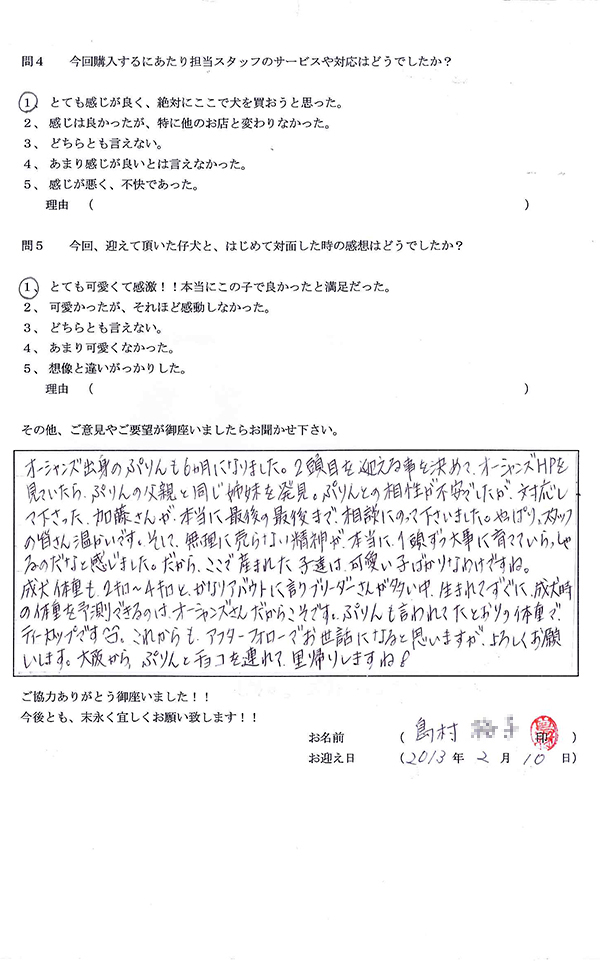 問4　今回購入するにあたり担当スタッフのサービスや対応はどうでしたか？
1、とても感じが良く、絶対にここで犬を買おうと思った。
2、感じは良かったが、特に他のお店と変わりなかった。
3、どちらとも言えない。
4、あまり感じが良いとは言えなかった。
5、感じが悪く、不快であった。
理由　（　）
問5　今回、迎えて頂いた仔犬と、はじめて対面した時の感想はどうでしたか？
1、とても可愛くて感激！！本当にこの子で良かったと満足だった。
2、可愛かったが、それほど感動しなかった。
3、どちらとも言えない。
4、あまり可愛くなかった。
5、想像と違いがっかりした。
理由　（　）
その他、ご意見やご要望が御座いましたらお聞かせ下さい。
オーシャンズ出身のぷりんも6か月になりました。2頭目を迎える事を決めて、オーシャンズHPを
見ていたら、ぷりんの父親と同じ姉妹を発見。ぷりんとの相性が不安でしたが、対応し
て下さった、加藤さんが、本当に最後の最後まで、相談にのって下さいました。やっぱり、スタッフ
の皆さん温かいです。そして、無理に売らない精神が、本当に、1頭ずつ大事に育てていらっしゃ
るのだなと感じました。だから、ここで産まれた子達は、可愛い子ばかりなわけですね。
成犬体重も、2キロ～4キロと、かなりアバウトに言うブリーダーさんが多い中、生まれてすぐに、成犬時
の体重を予測できるのは、オーシャンズさんだからこそです。ぷりんも言われてたとおりの体重で、
ティーカップです。これからも、アフターフォローでお世話になると思いますが、よろしくお願
いします。大阪から、ぷりんとチョコを連れて、里帰りしますね!
ご協力ありがとう御座いました！！
今後とも、末永く宜しくお願い致します！！
お名前　（島村　印）
お迎え日　（2013年2月10日）